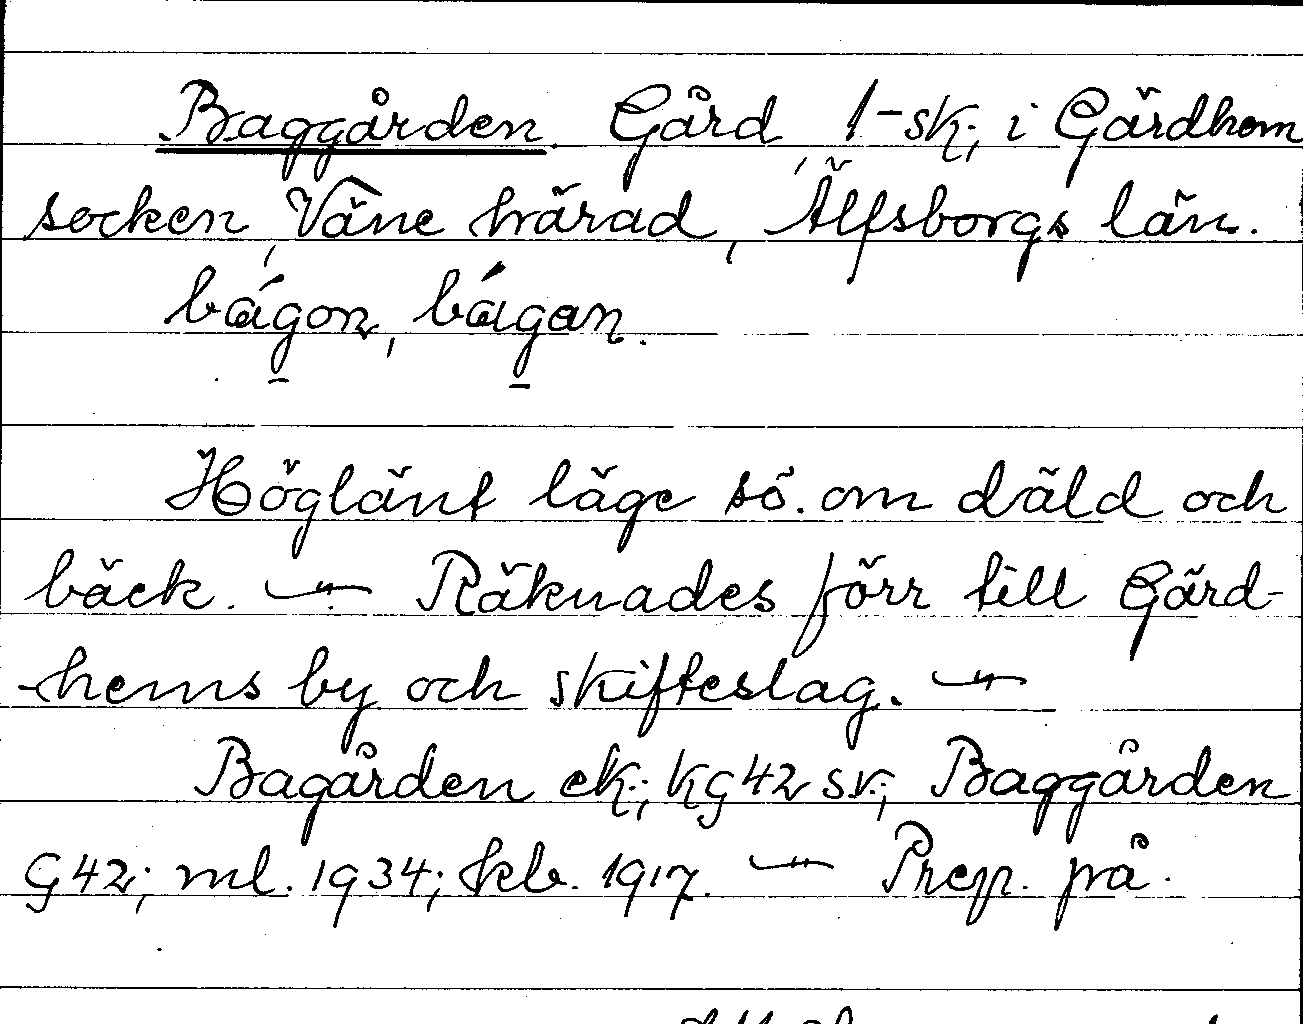 Baggården. Gård, 1-sk., i Gärdhem
socken, Väne härad, Älfsborgs län.
bágon, bágan.
Höglänt läge sö. om däld och
bäck. — Räknades förr till Gärd-
-hems by och skifteslag. —
Bagården ek.; kg 42 sv.; Baggården
G 42; ml. 1934; kb. 1917. — Prep. på.